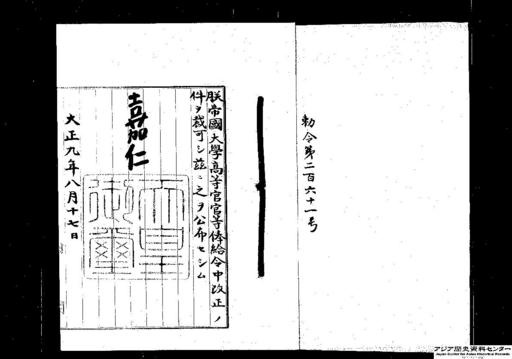 勅令第二百六十一号
朕帝國大學高等官官等俸給令中改正ノ
件ヲ裁可シ茲ニ之ヲ公布セシム
嘉仁
天皇
御璽
大正九年八月十七日
アジア歴史資料センター
Japan Center for Asian Historical Records